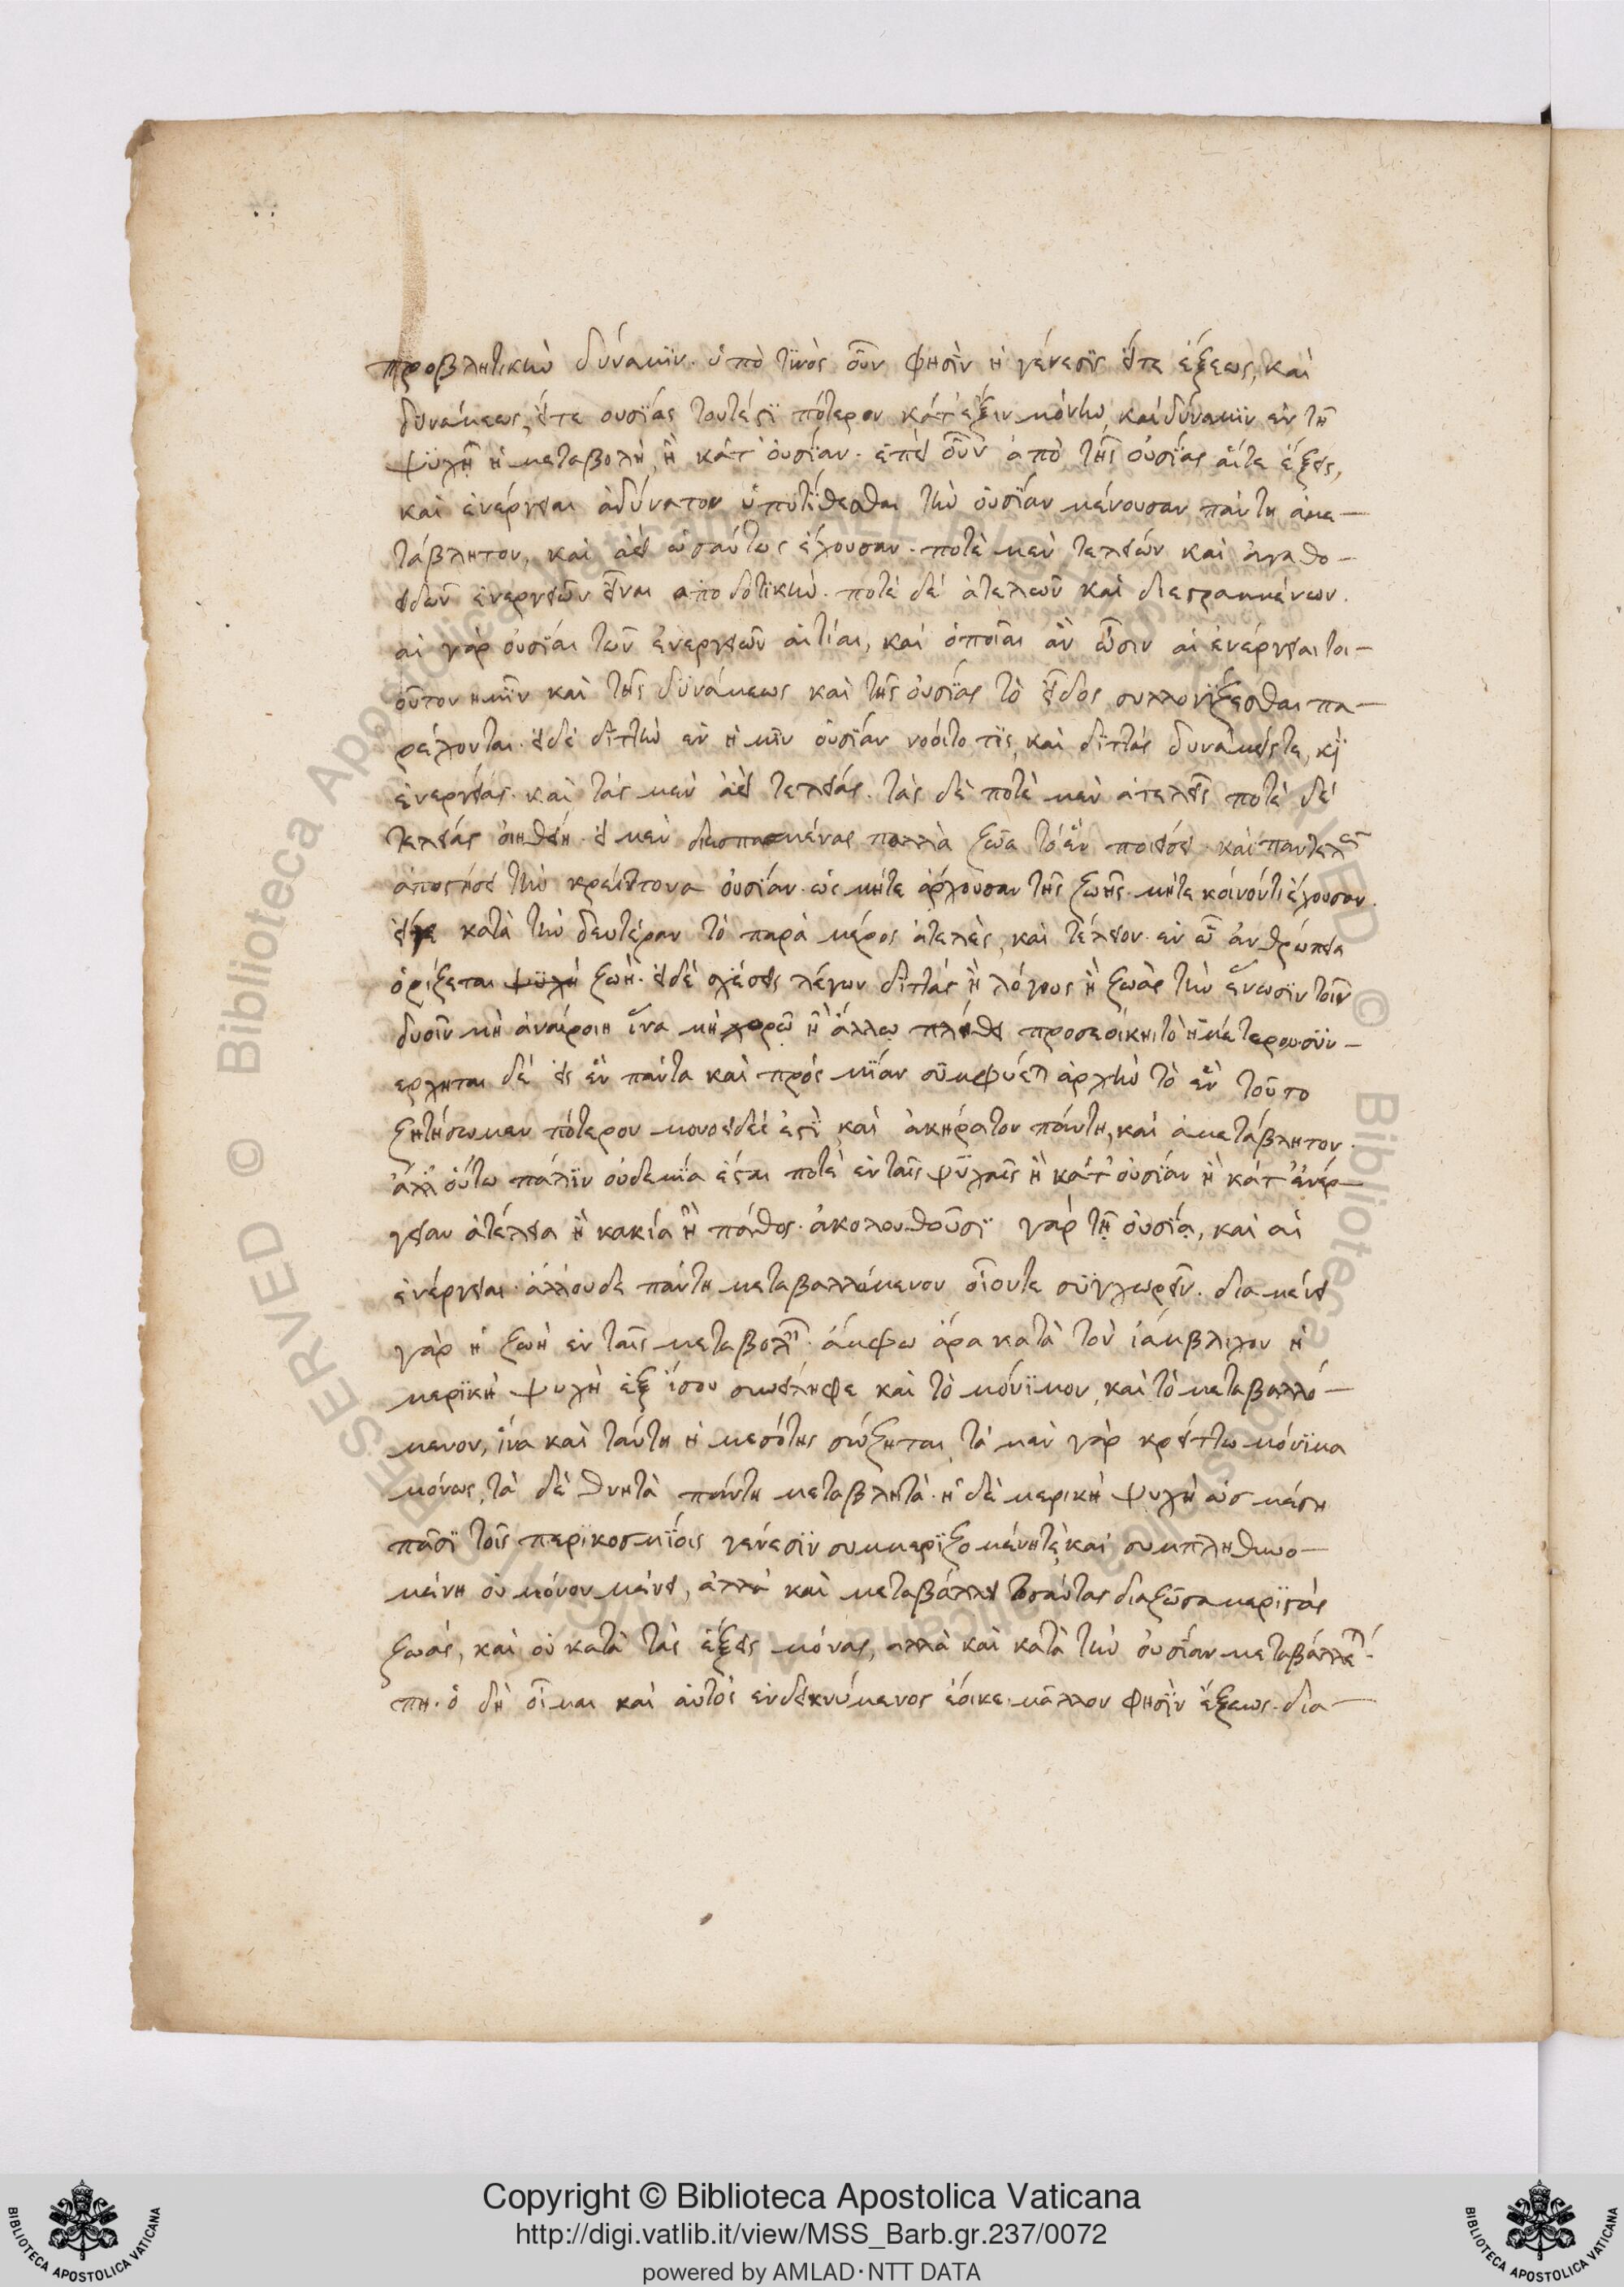 προβλητικὴν δύναμιν. ὑπὸ τινὸς οὖν φησὶν ἡ γένεσις εἴτε ἕξεως, καὶ
δυνάμεως, εἴτε ουσίας τουτέστι πότερον κάτ' ἕξιν μόνην, καὶ δύναμιν ἐν τῆ
ψυχῆ ἡ μεταβολὴ, ἢ κάτ' ὀυσίαν. ἐπεὶ οὖν ἀπὸ τῆς οὐσίας αἵτε ἕξεις,
καὶ ἐνέργειαι ἀδύνατον ὑποτίθεσθαι τὴν ὀυσίαν μένουσαν πάντη ἀμε-
τάβλητον, καὶ ἀεὶ ὡσαύτως ἔχουσαν. ποτὲ μὲν τελειῶν καὶ ἀγαθο-
ειδῶν ἐνεργειῶν εἶναι αποδοτικὴν. ποτὲ δέ ἀτελεῶν καὶ διεστραμμένων.
αἱ γὰρ οὐσίαι τῶν ἐνεργειῶν αἰτίαι, καί ὁποῖαι ἂν ὦσιν αἱ ἐνέργειαι τοι-
οῦτον ἡμῖν καὶ τῆς δυνάμεως καὶ τῆς οὐσίας τὸ εἶδος συλλογίζεσθαι πα-
ρέχονται. εἰδὲ διττὴν ἐν ἡμῖν οὐσίαν νοόιτο τίς, καὶ διττάς δυνάμεις τε, καὶ
ἐνεργείας. καὶ τάς μεν ἀεὶ τελείας. τὰς δὲ ποτὲ μεν ἀτελεῖς ποτὲ δέ
τελείας ὀιηθείη. εἰ μεν διεσπασμένας πολλὰ ζῶα τὸ ἓν ποιήσει. καὶ παντελῶς
ἀποστήσει τὴν κρείττονα οὐσίαν. ὡς μήτε ἄρχουσαν τῆς ζωῆς. μήτε κοινόν τι ἔχουσαν.
κατὰ τὴν δευτέραν τὸ παρὰ μέρος ἀτελὲς, καὶ τέλειον. ἐν ὧ ἀνθρωπεία
ὁρίζεται ψυχή ζωὴ. εἰδὲ σχέσεις λέγων διττάς ἢ λόγους ἢ ζωὰς τὴν ἕνωσιν τοῖν
δυοῖν μὴ ἀναίροιη ἵνα μὴ χορῶ ἢ ἄλλω πλήθει προσεοίκη τὸ ἡμέτερον. συν-
έρχηται δέ εἰς ἓν πάντα καὶ πρός μίαν συμφύεται ἀρχὴν τὸ ἓν τοῦτο
ζητήσωμεν πότερον μονοειδέ ἐστὶ καὶ ἀκήρατον πάντη, καὶ ἀμετάβλητον.
ἀλλ' οὕτω πάλιν οὐδεμία ἔσται ποτὲ ἐν ταῖς ψυχαῖς ἢ κάτ' οὐσίαν ἢ κάτ' ἐνέρ-
γειαν ἀτέλεια ἢ κακία ἢ πάθος. ἀκολουθοῦσι γάρ τῆ οὐσία, καὶ αἱ
ἐνέργειαι. ἀλλ' ουδε πάντη μεταβαλλόμενον οἷόντε συγχωρεῖν. διαμένει
γὰρ ἡ ζωὴ ἐν ταῖς μεταβολαῖς. ἄμφω ἄρα κατὰ τὸν ἰάμβλιχον ἡ
μερικὴ ψυχὴ ἐξ ἴσου συνείληφε καὶ τὸ μόνιμον, καὶ τὸ μεταβαλλό-
μενον, ἵνα καὶ ταύτη ἡ μεσότης σώζηται, τὰ μεν γὰρ κρείττω μόνιμα
μόνως, τὰ δὲ θνητὰ πάντη μεταβλητὰ. ἡ δὲ μερικὴ ψυχὴ ὡς μέση
πᾶσι τοῖς περικοσμίοις γένεσιν συμμεριζομένητε, καὶ συμπληθυνο-
μένη οὐ μόνον μένει, ἀλλὰ καὶ μεταβάλλει τοσαύτας διαζῶσα μεριστάς
ζωάς, καὶ οὐ κατὰ τάς ἕξεις μόνας, αλλὰ καὶ κατὰ τὴν οὐσίαν μεταβάλλεταί
πη. ὃ δὴ οἶμαι καὶ αὐτός ἐνδεικνύμενος ἔοικε. μᾶλλον φησὶν ἕξεως. δια-
Copyright © Biblioteca Apostolica Vaticana
http://digi.vatlib.it/view/MSS_Barb.gr.237/0072
powered by AMLAD·NTT DATA